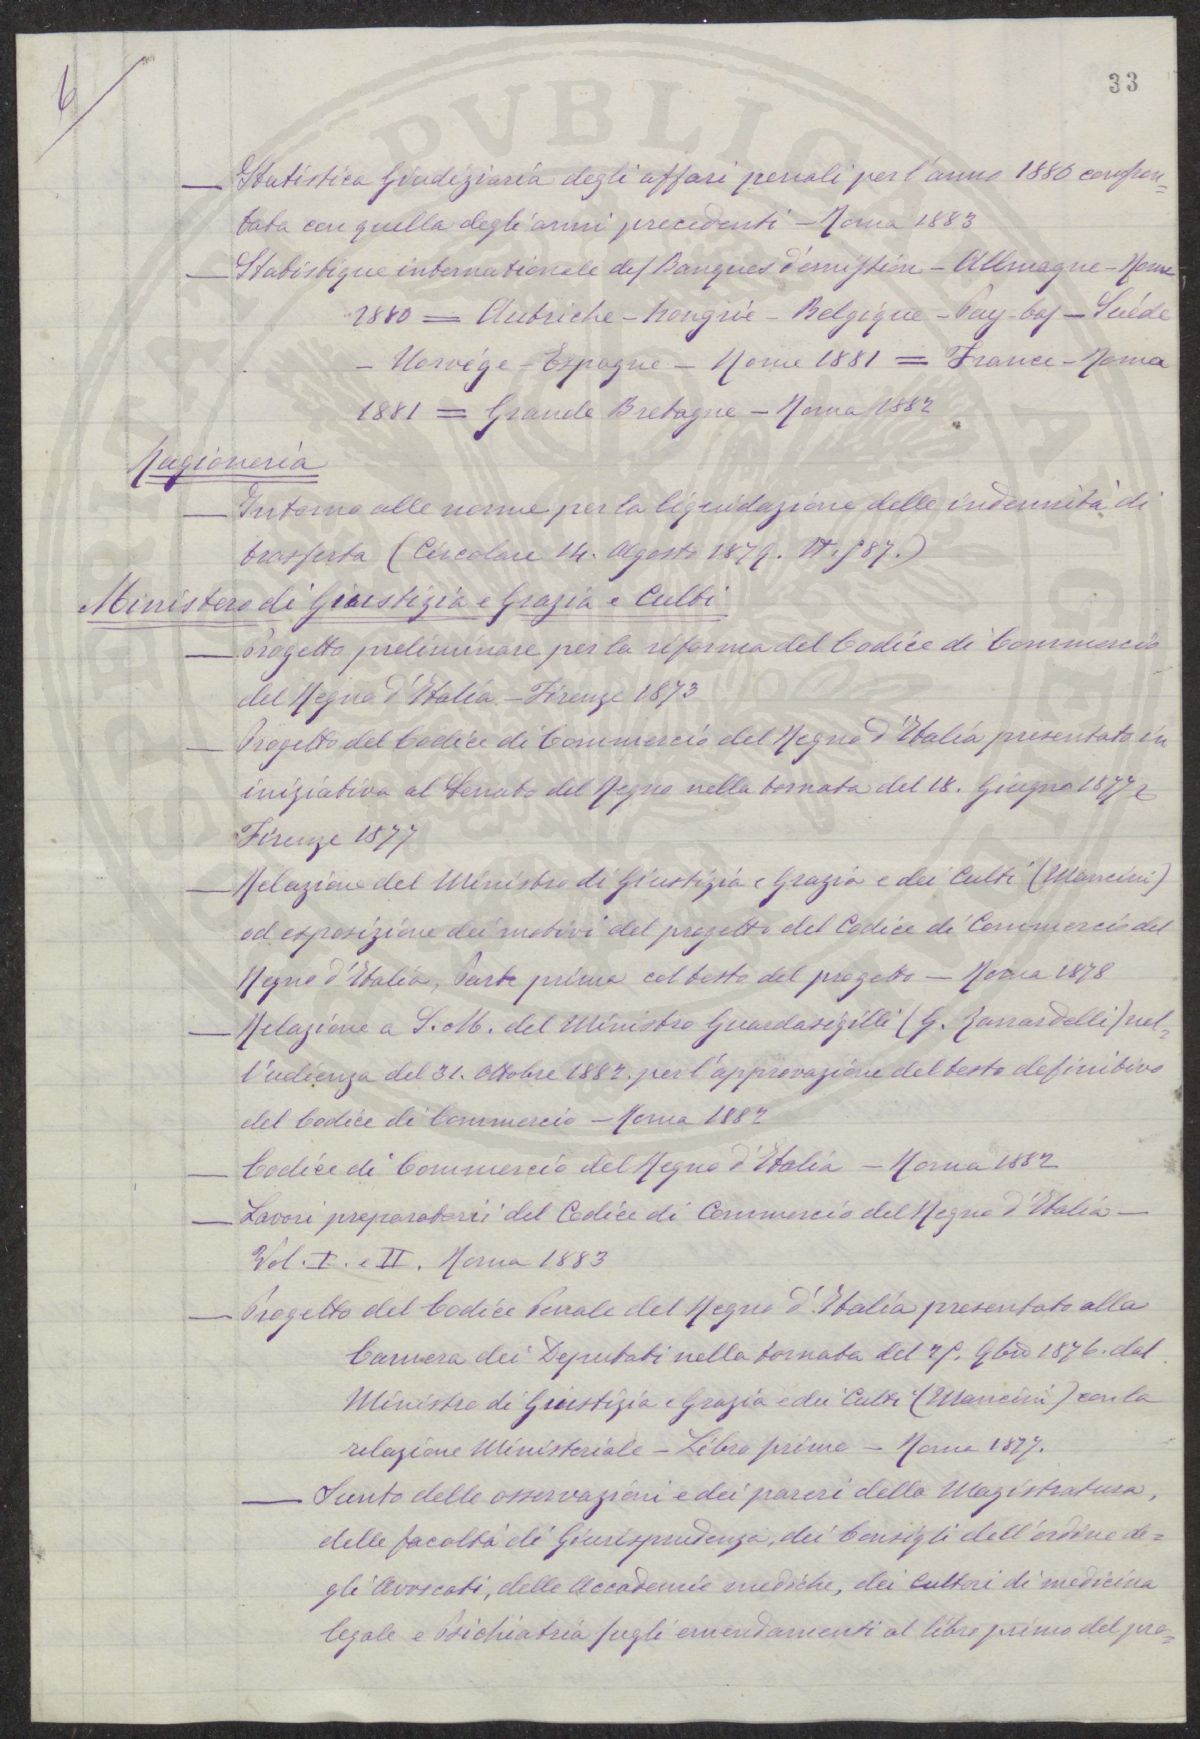 6/
33
— Statistica Giudiziaria degli affari penali per l'anno 1880 confron=
tata con quella degli anni precedenti — Roma 1883
— Statistique internationale des Banques d'émission — Allmagne — Rome
1880 = Autriche — hongrie — Belgique — Pay-bas — Suéde
— Norvége — Espagne — Rome 1881 = France — Roma
1881 = Grande Bretagne — Roma 1882
Ragioneria
— Intorno alle norme per la liquidazione delle indennità di
trasferta (Circolare 14. Agosto 1879. 987.)
Ministero di Giustizia e Grazia e Culti
— Progetto preliminare per la riforma del Codice di Commercio
del Regno d'Italia — Firenze 1873
— Progetto del Codice di Commercio del Regno d'Italia presentato in
iniziativa al Senato del Regno nella tornata del 18. Giugno 1877
Firenze 1877
— Relazione del Ministro di Giustizia e Grazia e dei Culti (Mancini)
ad esposizione dei motivi del progetto del Codice di Commercio del
Regno d'Italia, Parte prima col testo del progetto — Roma 1878
— Relazione a S. M. del Ministro Guardasigilli (G. Zanardelli) nel=
l'udienza del 31. Ottobre 1882. per l'approvazione del testo definitivo
del Codice di Commercio — Roma 1882
— Codice di Commercio del Regno d'Italia — Roma 1882
— Lavori preparatorii del Codice di Commercio del Regno d'Italia —
Vol. I. e II. Roma 1883
— Progetto del Codice Penale del Regno d'Italia presentato alla
Camera dei Deputati nella tornata del 25. 9bre 1876. dal
Ministro di Giustizia e Grazia e dei Culti (Mancini) con la
relazione Ministeriale — Libro primo — Roma 1877.
— Sunto delle osservazioni e dei pareri della Magistratura,
delle facoltà di Giurisprudenza, dei Consigli dell'ordine de=
gli Avvocati, delle Accademie mediche, dei Cultori di medicina
legale e Psichiatria sugli emendamenti al libro primo del pro=